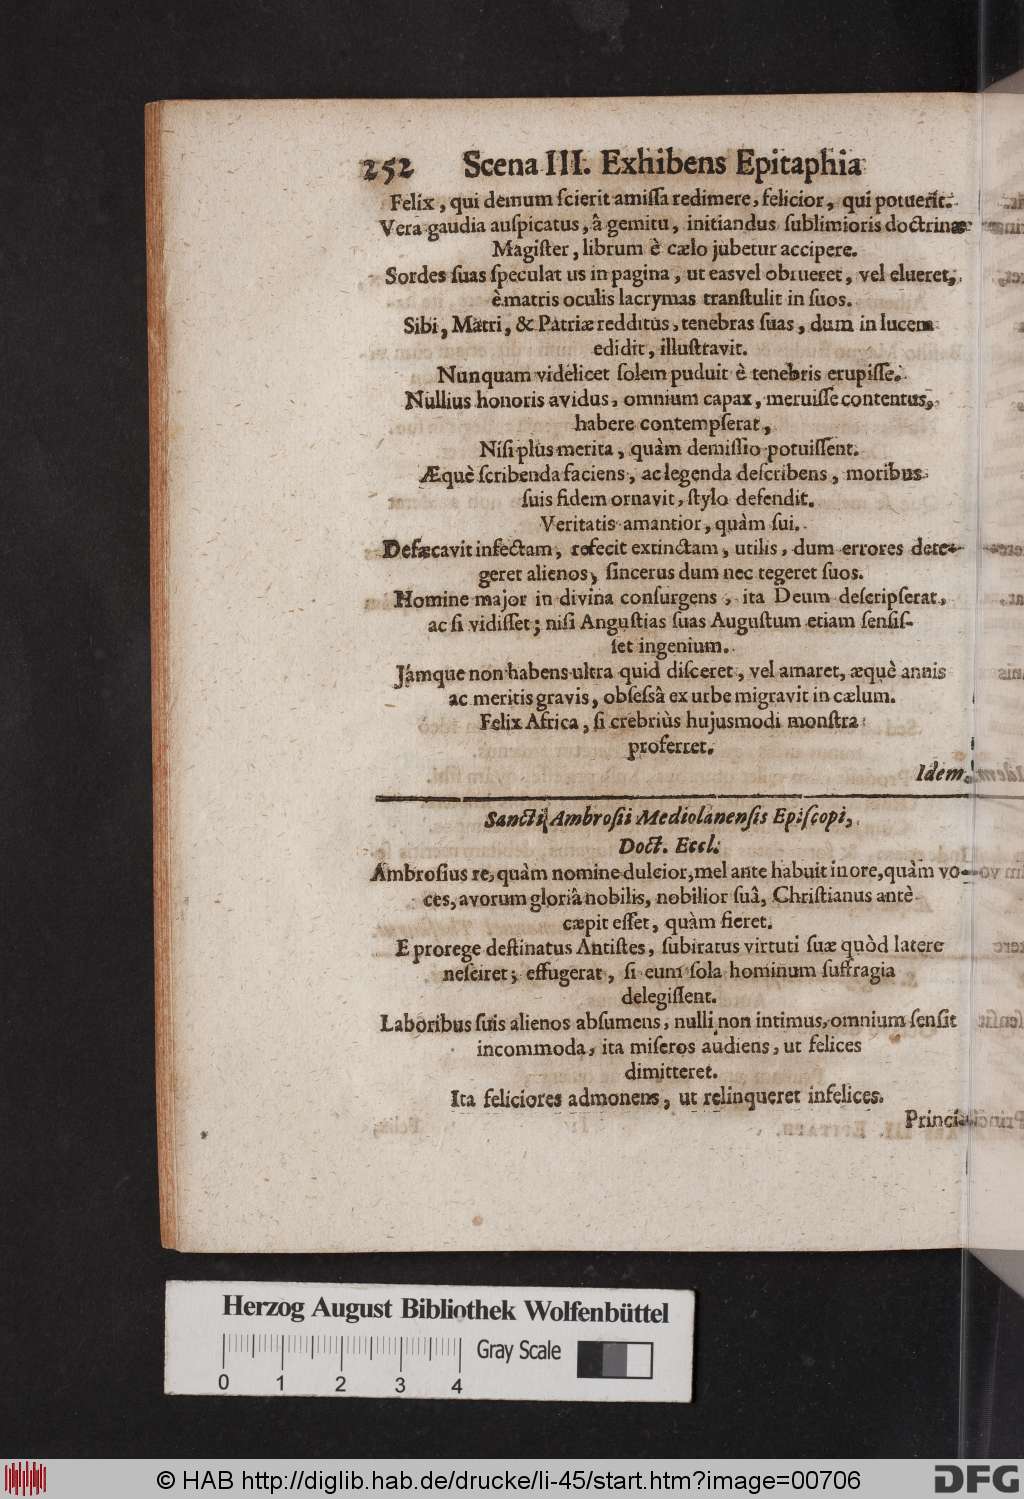 252 Scena III. Exhibens Epitaphia
Felix, qui demum ſcierit amiſſa redimere, felicior, qui potuerit.
Vera gaudia auſpicatus, â gemitu, initiandus ſublimioris doctrinæ
Magiſter, librum è cælo jubetur accipere.
Sordes ſuas ſpeculat us in pagina, ut easvel obrueret, vel elueret,
è matris oculis lacrymas tranſtulit in ſuos.
Sibi, Matri, & Patriæ redditus, tenebras ſuas, dum in lucem
edidit, illuſtravit.
Nunquam videlicet ſolem puduit è tenebris erupiſſe.
Nullius honoris avidus, omnium capax, meruiſſe contentus,
habere contempſerat,
Niſi plus merita, quàm demiſſio potuiſſent.
Æquè ſcribenda faciens, ac legenda deſcribens, moribus
ſuis fidem ornavit, ſtylo defendit.
Veritatis amantior, quàm ſui.
Defæcavit infectam, refecit extinctam, utilis, dum errores dete-
geret alienos, ſincerus dum nec tegeret ſuos.
Homine major in divina conſurgens, ita Deum deſcripſerat,
ac ſi vidiſſet; niſi Anguſtias ſuas Auguſtum etiam ſenſiſ-
ſet ingenium.
Jámque non habens ultra quid diſceret, vel amaret, æquè annis
ac meritis gravis, obſeſsâ ex urbe migravit in cælum.
Felix Africa, ſi crebriùs hujusmodi monſtra
proferret.
Idem.
Sancti Ambroſii Mediolanenſis Epiſcopi,
Doct. Eccl.
Ambroſius re, quàm nomine dulcior, mel ante habuit in ore, quàm vo-
ces, avorum gloriâ nobilis, nobilior ſuâ, Chriſtianus antè
cæpit eſſet, quàm fieret.
E prorege deſtinatus Antiſtes, ſubiratus virtuti ſuæ quòd latere
neſciret; effugerat, ſi eum ſola hominum ſuffragia
delegiſſent.
Laboribus ſuis alienos abſumens, nulli non intimus, omnium ſenſit
incommoda, ita miſeros audiens, ut felices
dimitteret.
Ita feliciores admonens, ut relinqueret infelices.
Princi-
Herzog August Bibliothek Wolfenbüttel
Gray Scale
0 1 2 3 4
© HAB http://diglib.hab.de/drucke/li-45/start.htm?image=00706
DFG